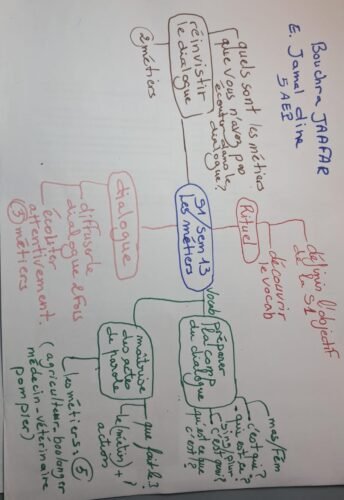 Bouchra JAAFAR
E. Jamal dine
5 AEP
S1 Sem 13
Les métiers
Rituel
définir l'objectif
de la S1
découvrir
le vocab
Vocab
préparer
la comp
du dialogue
mas/Fém
c'est que?
qui est-ce?
sing/plur
c'est quoi?
qui est ce que
c'est?
maîtrise
des actes
de parole
que fait le
le (métier) +
action
les métiers: 5
(agriculteur_boulanger
médecin-vétérinaire
pompier)
dialogue
diffuser le
dialogue 2 fois
écouter
attentivement.
3 métiers
réinvistir
le dialogue
quels sont les métiers
que vous n'avez pas
écouter dans le
dialogue?
2 métiers